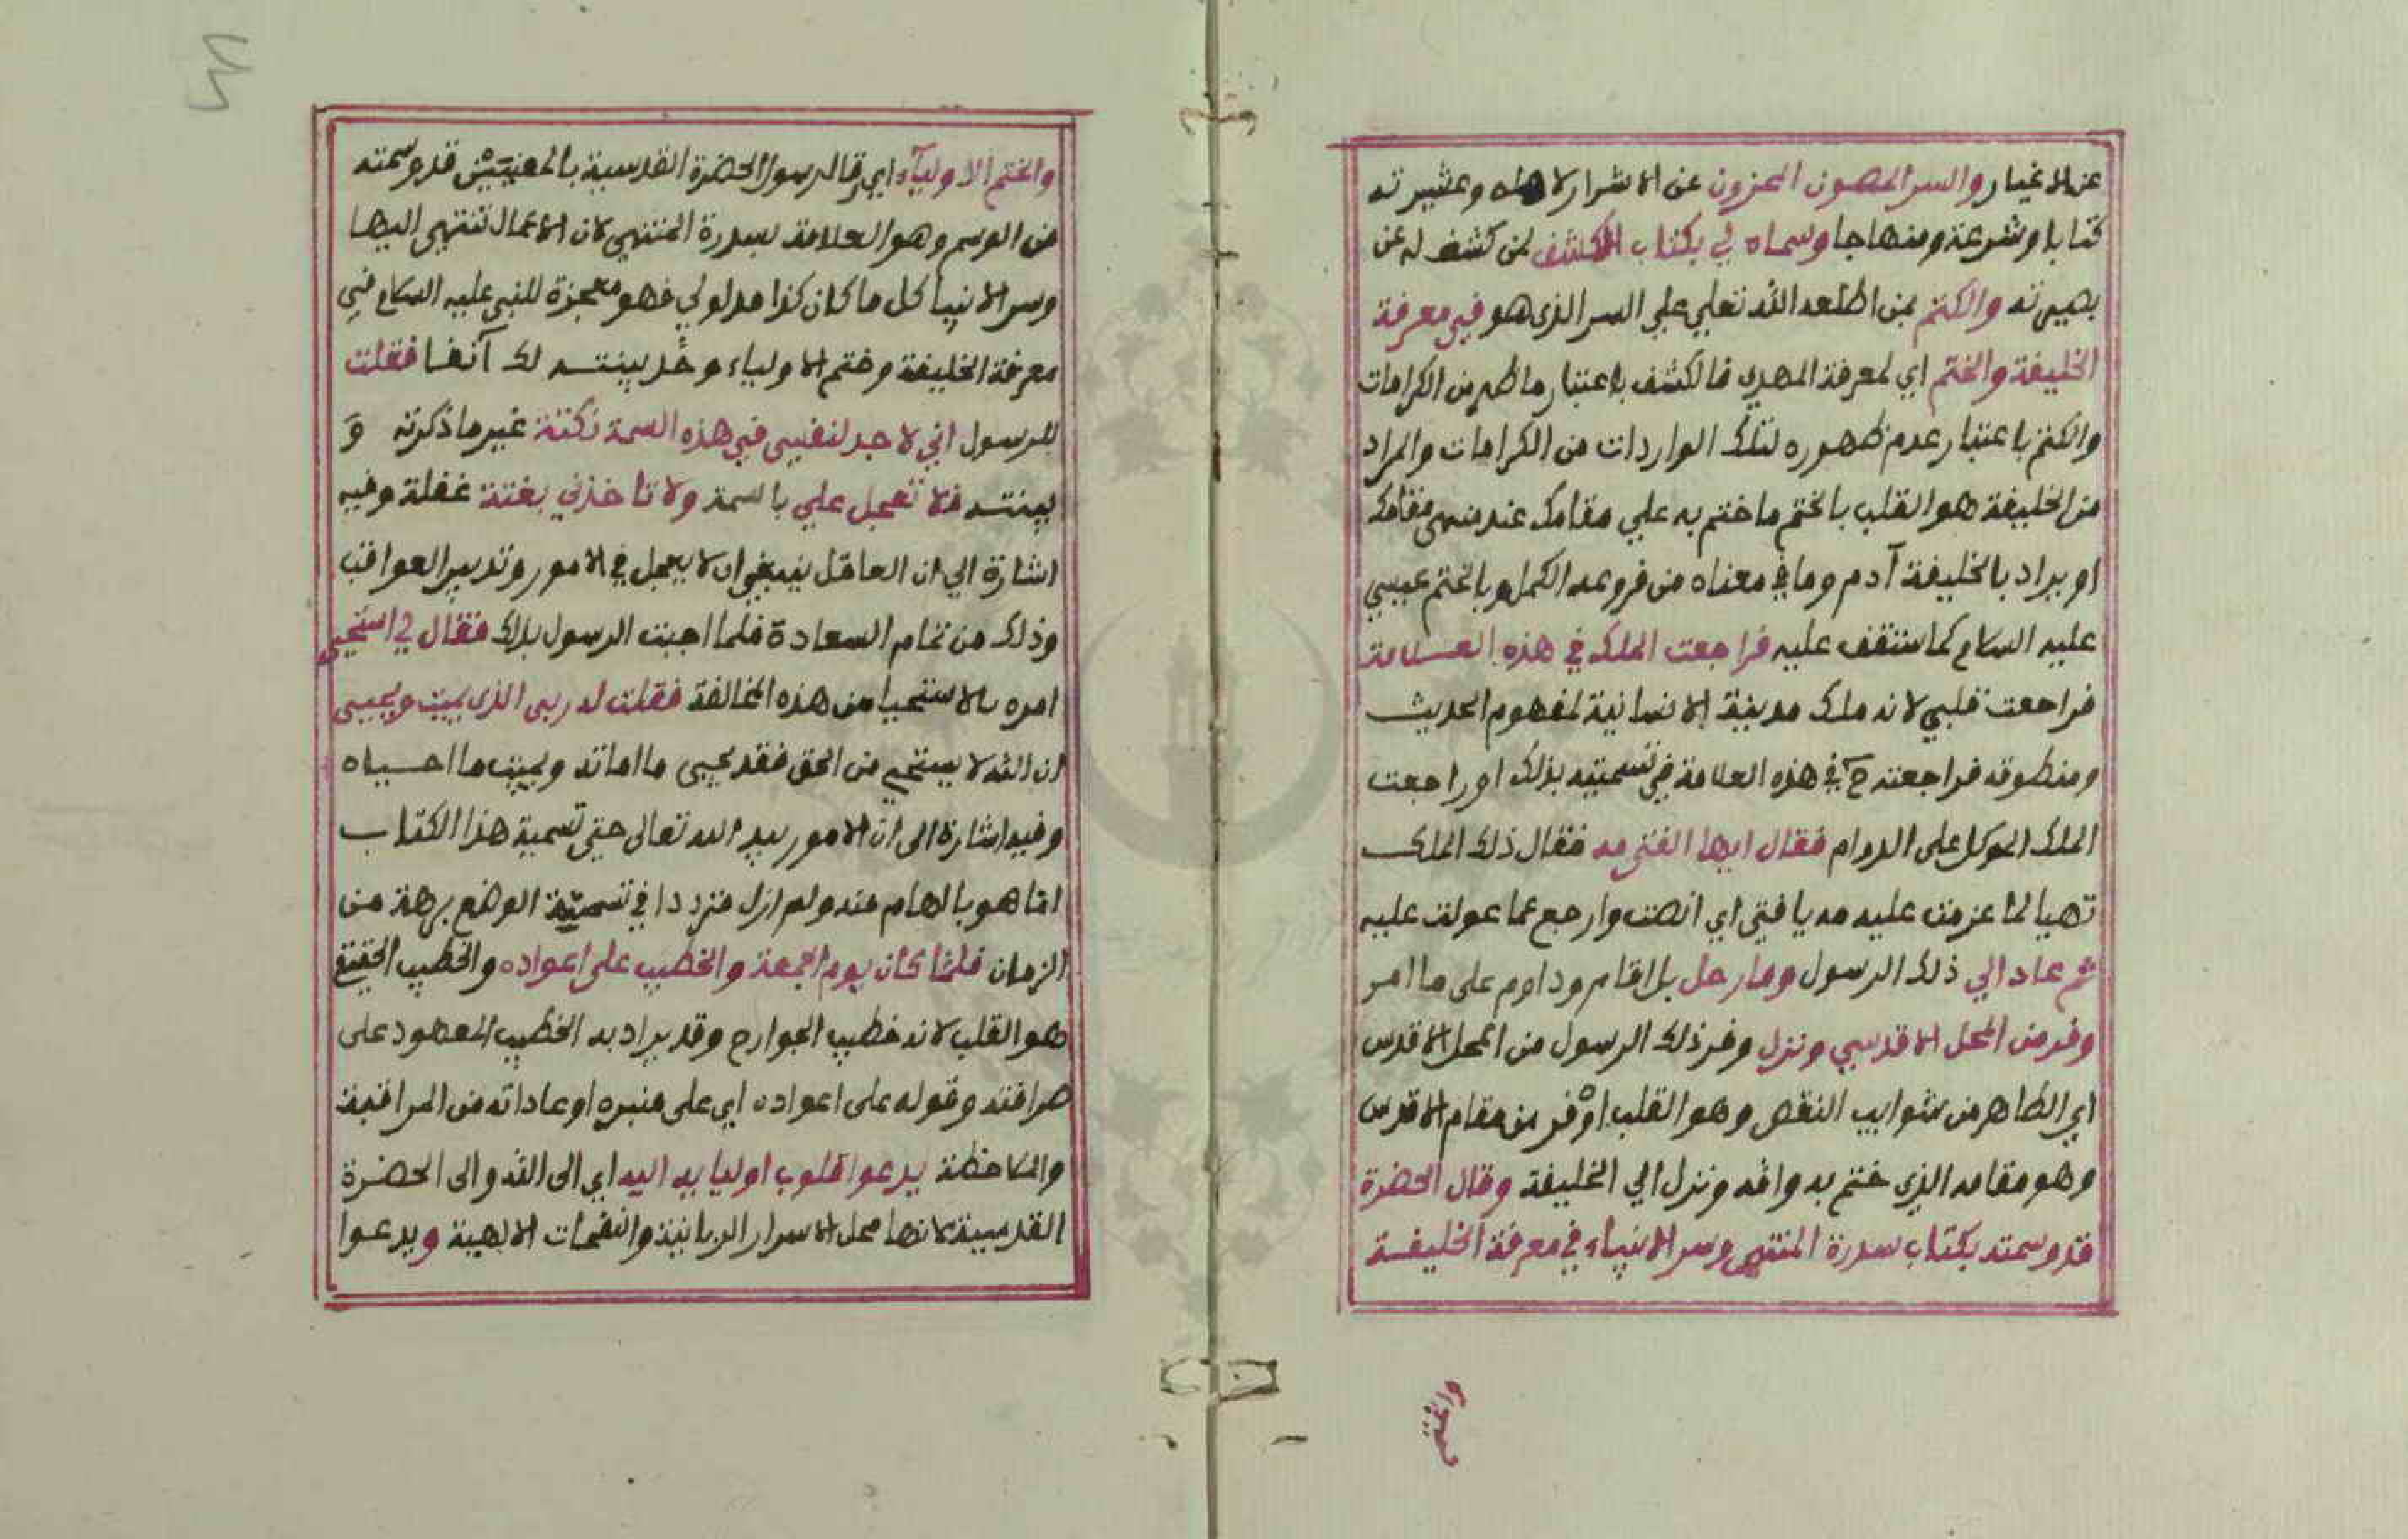 عن الاغيار والسر المصون المخزون عن الاشرار لاهله وعشيرته
كتابا وشرعة ومنهاجا وسماه لي بكتاب الكشف لمن كشف له عن
بصيرته والكتم لمن اطلعه الله تعلي علي السر الذي هو في معرفة
الخليفة والختم اي لمعرفة المهدي فالكشف باعتبار ما ظهر من الكرامات
والكتم باعتبار عدم ظهوره لتلك الواردات من الكرامات والمراد
من الخليفة هو القلب بالختم ما ختم به علي مقامك عند منهى مقامك
او يراد بالخليفة آدم وما في معناه من فروعه الكمل وبالختم عيسي
عليه السلام كما ستقف عليه فراجعت الملك في هذه العلامة
فراجعت قلبي لانه ملك مدينة الانسانية لمفهوم الحديث
ومنطوقه فراجعته ح في هذه العلامة في تسميته بذلك او راجعت
الملك الموكل على الدوام فقال ايها الفتى مه فقال ذلك الملك
تهيا لما عزمت عليه مه يا فتي اي انصت وارجع عما عولت عليه
ثم عاد الي ذلك الرسول وما رحل بل اقام وداوم على ما امر
وفر من المحل الاقدسي ونزل وفر ذلك الرسول من المحل الاقدس
اي الطاهر من شوايب النقص وهو القلب او فر من مقام الاقدس
وهو مقامه الذي ختم به وافه ونزل الي الخليفة وقال الحضرة
قد وسمته بكتاب سدرة المنتهى وسر الانبياء في معرفة الخليفة
والختم
والختم الاولياء اي قال الرسول الحضرة القدسية بالمعنيين قد وسمته
من الوسم وهو العلامة بسدرة المنتهي لان الاعمال تنتهي اليها
وسر الانبيا كل ما كان كذا مدلولي فهو معجزة للنبي عليه السلام في
معرفة الخليفة وختم الاولياء وقد بينته لك آنفا فقلت
للرسول اني لا جد لنفسي في هذه السمة نكتة غير ما ذكرته و
بينته فلا تعجل علي بالسمة ولا تاخذني بغتة غفلة وفيه
اشارة الي ان العاقل ينبغي ان لا يعجل في الامور وتدبير العواقب
وذلك من تمام السعادة فلما اجبت الرسول بذلك فقال لي استحيى
امره بالاستحيا من هذه المخالفة فقلت له ربي الذي يميت ويحيى
ان الله لا يستحيي من الحق فقد يحيى ما اماته ويميت ما احياه
وفيه اشارة الى ان الامور بيد الله تعالى حتى تسمية هذا الكتاب
انما هو بالهام منه ولم ازل مترددا في تسمية الوضع برهة من
الزمان فلما كان يوم الجمعة والخطيب على اعواده والخطيب الحقيقي
هو القلب لانه خطيب الجوارح وقد يراد به الخطيب المعهود على
صرافته وقوله على اعواده اي على منبره او عاداته من المراقبة
والملاحظة يدعوا قلوب اوليايه اليه اي الى الله والى الحضرة
القدسية لانها محل الاسرار الربانية والنفحات الالهية ويدعوا